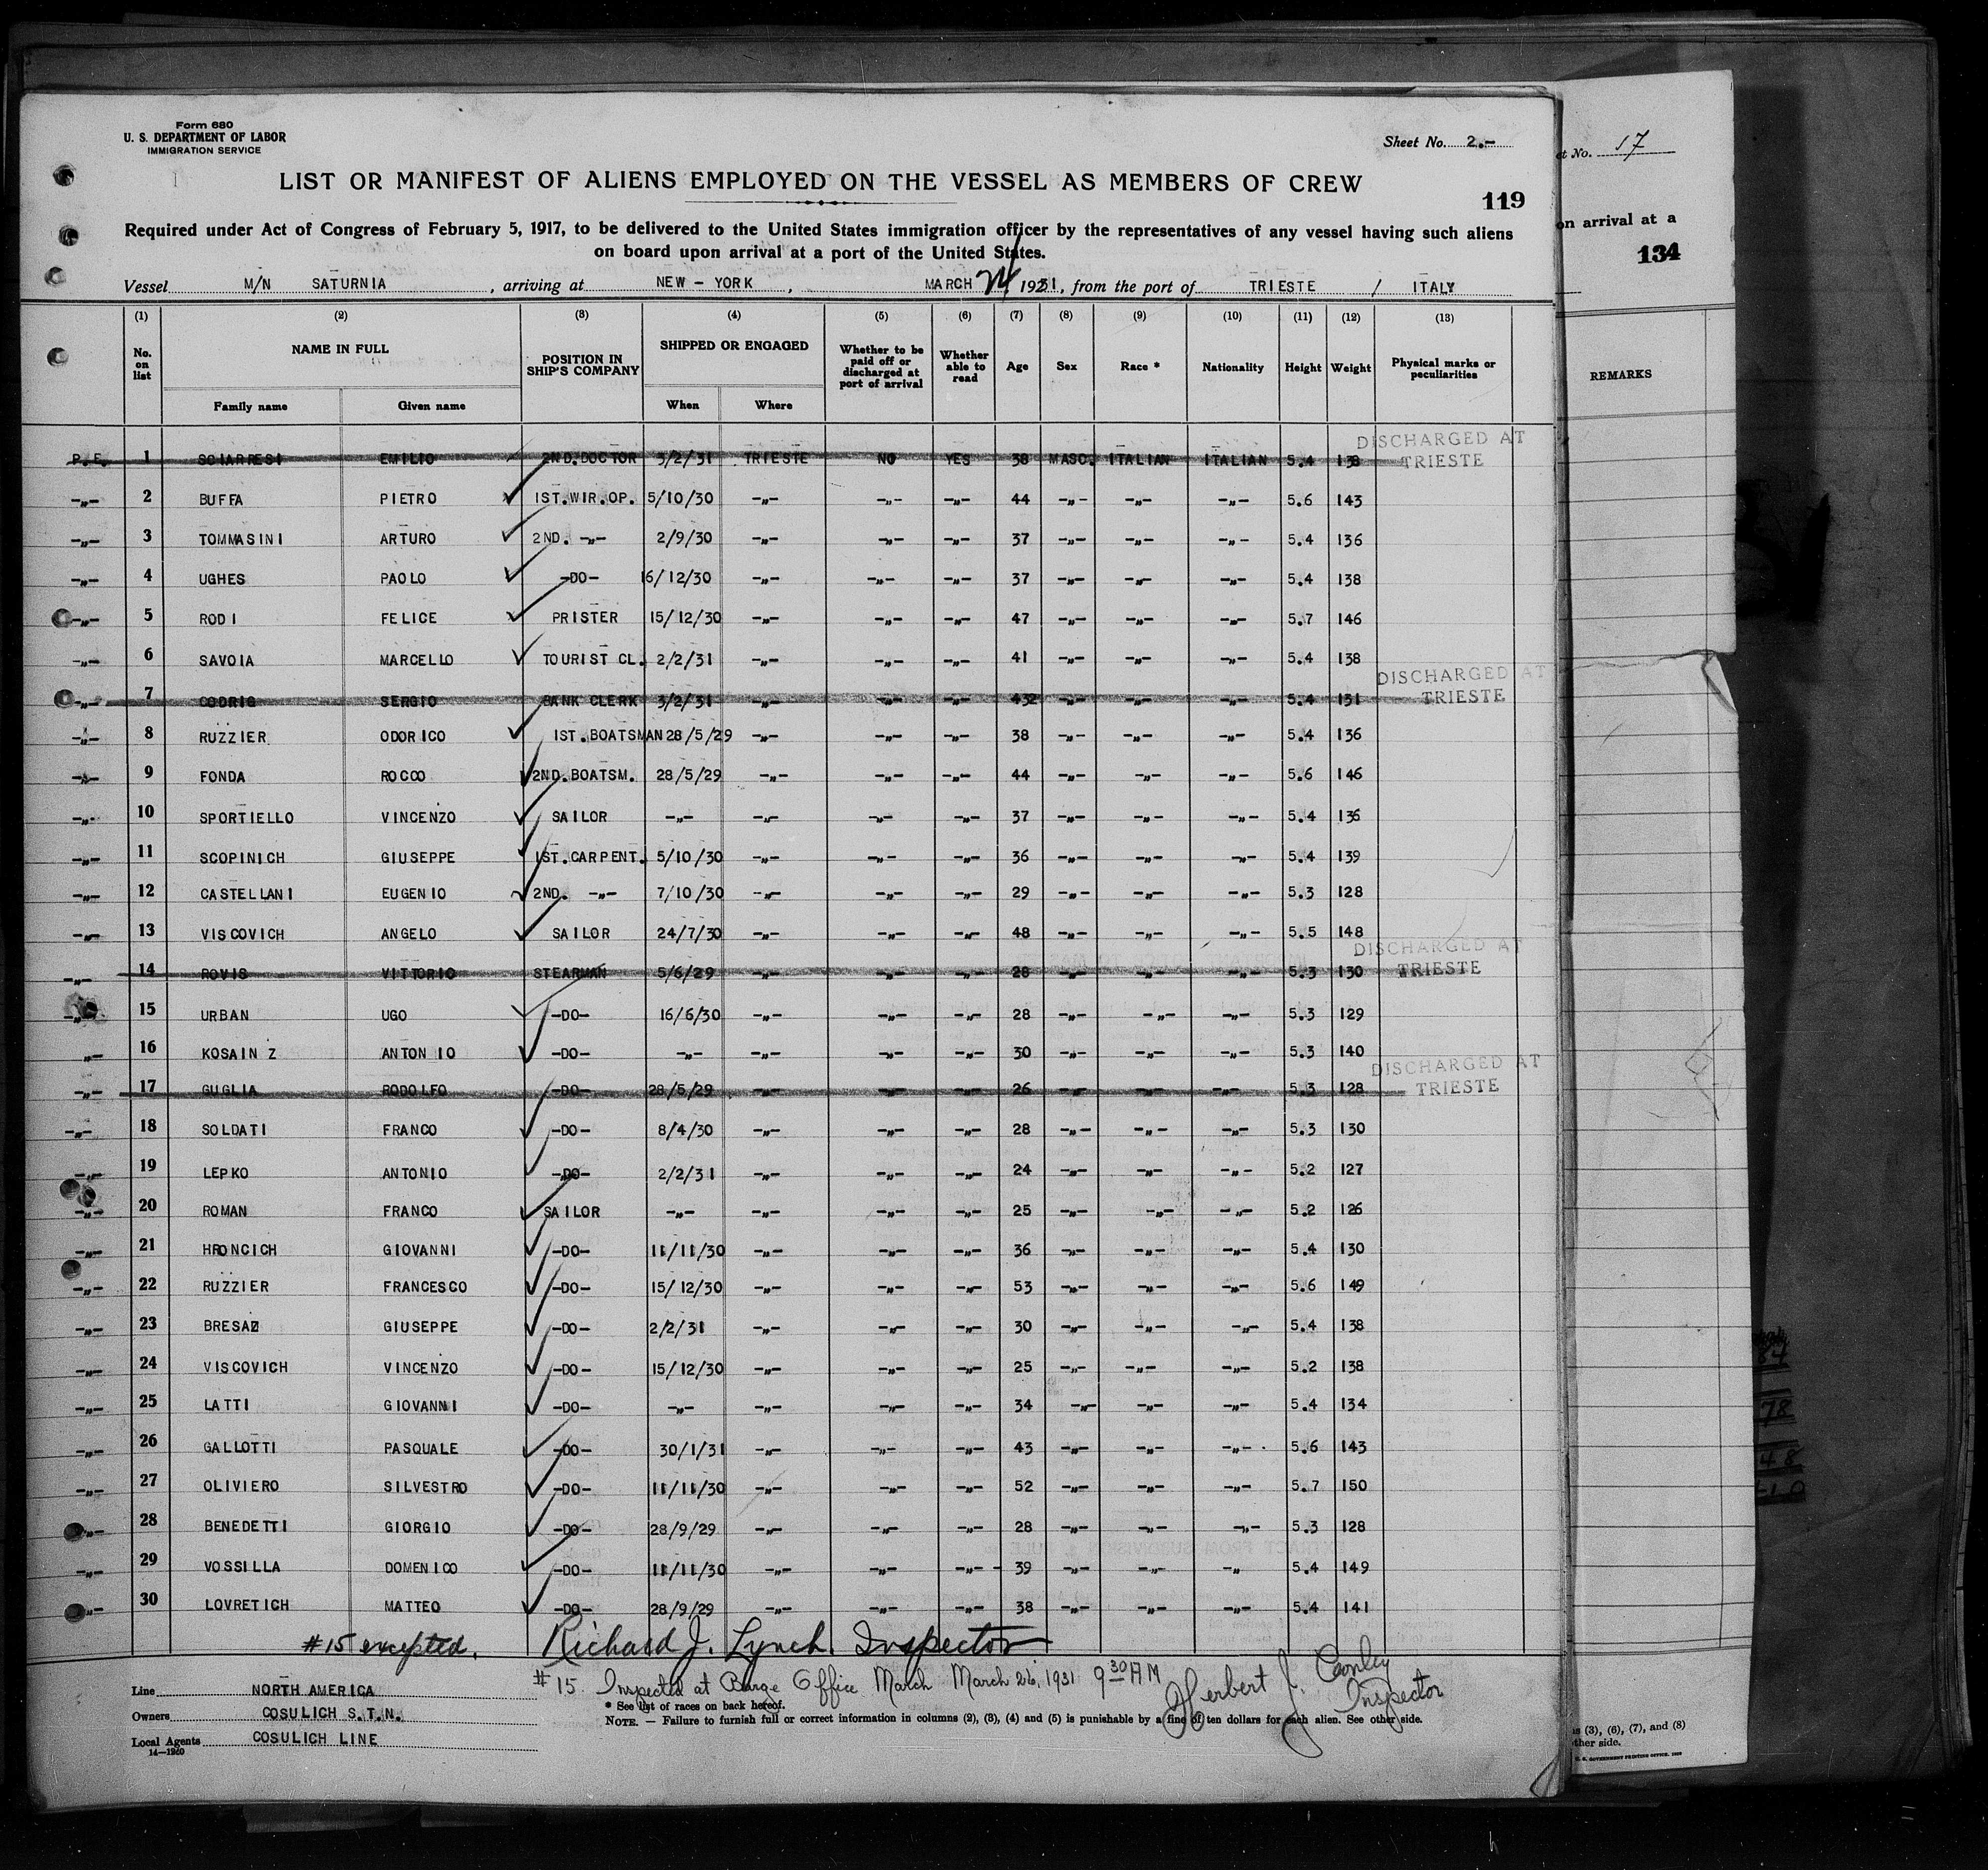 Form 680
U. S. DEPARTMENT OF LABOR
IMMIGRATION SERVICE
Sheet No. 2.-
LIST OR MANIFEST OF ALIENS EMPLOYED ON THE VESSEL AS MEMBERS OF CREW
119
Required under Act of Congress of February 5, 1917, to be delivered to the United States immigration officer by the representatives of any vessel having such aliens
on board upon arrival at a port of the United States.
Vessel M/N SATURNIA, arriving at NEW-YORK, MARCH 24 1931, from the port of TRIESTE / ITALY
(1) (2) (3) (4) (5) (6) (7) (8) (9) (10) (11) (12) (13)
No. on list NAME IN FULL POSITION IN SHIP'S COMPANY SHIPPED OR ENGAGED Whether to be paid off or discharged at port of arrival Whether able to read Age Sex Race * Nationality Height Weight Physical marks or peculiarities
Family name Given name When Where
P.E. 1 SCIARRESI EMILIO 2ND.DOCTOR 3/2/31 TRIESTE NO YES 38 MASC. ITALIAN ITALIAN 5.4 138 DISCHARGED AT TRIESTE
-"- 2 BUFFA PIETRO 1ST.WIR.OP. 5/10/30 -"- -"- -"- 44 -"- -"- -"- 5.6 143
-"- 3 TOMMASINI ARTURO 2ND. -"- 2/9/30 -"- -"- -"- 37 -"- -"- -"- 5.4 136
-"- 4 UGHES PAOLO -DO- 16/12/30 -"- -"- -"- 37 -"- -"- -"- 5.4 138
-"- 5 RODI FELICE PRISTER 15/12/30 -"- -"- -"- 47 -"- -"- -"- 5.7 146
-"- 6 SAVOIA MARCELLO TOURIST CL. 2/2/31 -"- -"- -"- 41 -"- -"- -"- 5.4 138
-"- 7 CODRIG SERGIO BANK CLERK 3/2/31 -"- -"- -"- -"- -"- -"- 5.4 131 DISCHARGED AT TRIESTE
-"- 8 RUZZIER ODORICO 1ST.BOATSMAN 28/5/29 -"- -"- -"- 38 -"- -"- -"- 5.4 136
-"- 9 FONDA ROCCO 2ND.BOATSM. 28/5/29 -"- -"- -"- 44 -"- -"- -"- 5.6 146
-"- 10 SPORTIELLO VINCENZO SAILOR -"- -"- -"- -"- 37 -"- -"- -"- 5.4 136
-"- 11 SCOPINICH GIUSEPPE 1ST.CARPENT. 5/10/30 -"- -"- -"- 36 -"- -"- -"- 5.4 139
-"- 12 CASTELLANI EUGENIO 2ND. -"- 7/10/30 -"- -"- -"- 29 -"- -"- -"- 5.3 128
-"- 13 VISCOVICH ANGELO SAILOR 24/7/30 -"- -"- -"- 48 -"- -"- -"- 5.5 148
-"- 14 ROVIS VITTORIO STEARMAN 5/6/29 -"- -"- -"- 28 -"- -"- -"- 5.3 130 DISCHARGED AT TRIESTE
-"- 15 URBAN UGO -DO- 16/6/30 -"- -"- -"- 28 -"- -"- -"- 5.3 129
-"- 16 KOSAINZ ANTONIO -DO- -"- -"- -"- -"- 30 -"- -"- -"- 5.3 140
-"- 17 GUGLIA RODOLFO -DO- 28/5/29 -"- -"- -"- 26 -"- -"- -"- 5.3 128 DISCHARGED AT TRIESTE
-"- 18 SOLDATI FRANCO -DO- 8/4/30 -"- -"- -"- 28 -"- -"- -"- 5.3 130
-"- 19 LEPKO ANTONIO -DO- 2/2/31 -"- -"- -"- 24 -"- -"- -"- 5.2 127
-"- 20 ROMAN FRANCO SAILOR -"- -"- -"- -"- 25 -"- -"- -"- 5.2 126
-"- 21 HRONCICH GIOVANNI -DO- 11/11/30 -"- -"- -"- 36 -"- -"- -"- 5.4 130
-"- 22 RUZZIER FRANCESCO -DO- 15/12/30 -"- -"- -"- 53 -"- -"- -"- 5.6 149
-"- 23 BRESAZ GIUSEPPE -DO- 2/2/31 -"- -"- -"- 30 -"- -"- -"- 5.4 138
-"- 24 VISCOVICH VINCENZO -DO- 15/12/30 -"- -"- -"- 25 -"- -"- -"- 5.2 138
-"- 25 LATTI GIOVANNI -DO- -"- -"- -"- -"- 34 -"- -"- -"- 5.4 134
-"- 26 GALLOTTI PASQUALE -DO- 30/1/31 -"- -"- -"- 43 -"- -"- -"- 5.6 143
-"- 27 OLIVIERO SILVESTRO -DO- 11/11/30 -"- -"- -"- 52 -"- -"- -"- 5.7 150
-"- 28 BENEDETTI GIORGIO -DO- 28/9/29 -"- -"- -"- 28 -"- -"- -"- 5.3 128
-"- 29 VOSSILLA DOMENICO -DO- 11/11/30 -"- -"- -"- 39 -"- -"- -"- 5.4 149
-"- 30 LOVRETICH MATTEO -DO- 28/9/29 -"- -"- -"- 38 -"- -"- -"- 5.4 141
#15 excepted. Richard J. Lynch. Inspector
#15 Inspected at Barge Office March March 26, 1931 9 30 AM Herbert J. Conley Inspector
Line NORTH AMERICA
Owners COSULICH S.T.N.
Local Agents COSULICH LINE
14-1920
* See list of races on back hereof.
NOTE. — Failure to furnish full or correct information in columns (2), (3), (4) and (5) is punishable by a fine of ten dollars for each alien. See other side.
et No. 17
on arrival at a
134
REMARKS
s (3), (6), (7), and (8)
other side.
U. S. GOVERNMENT PRINTING OFFICE